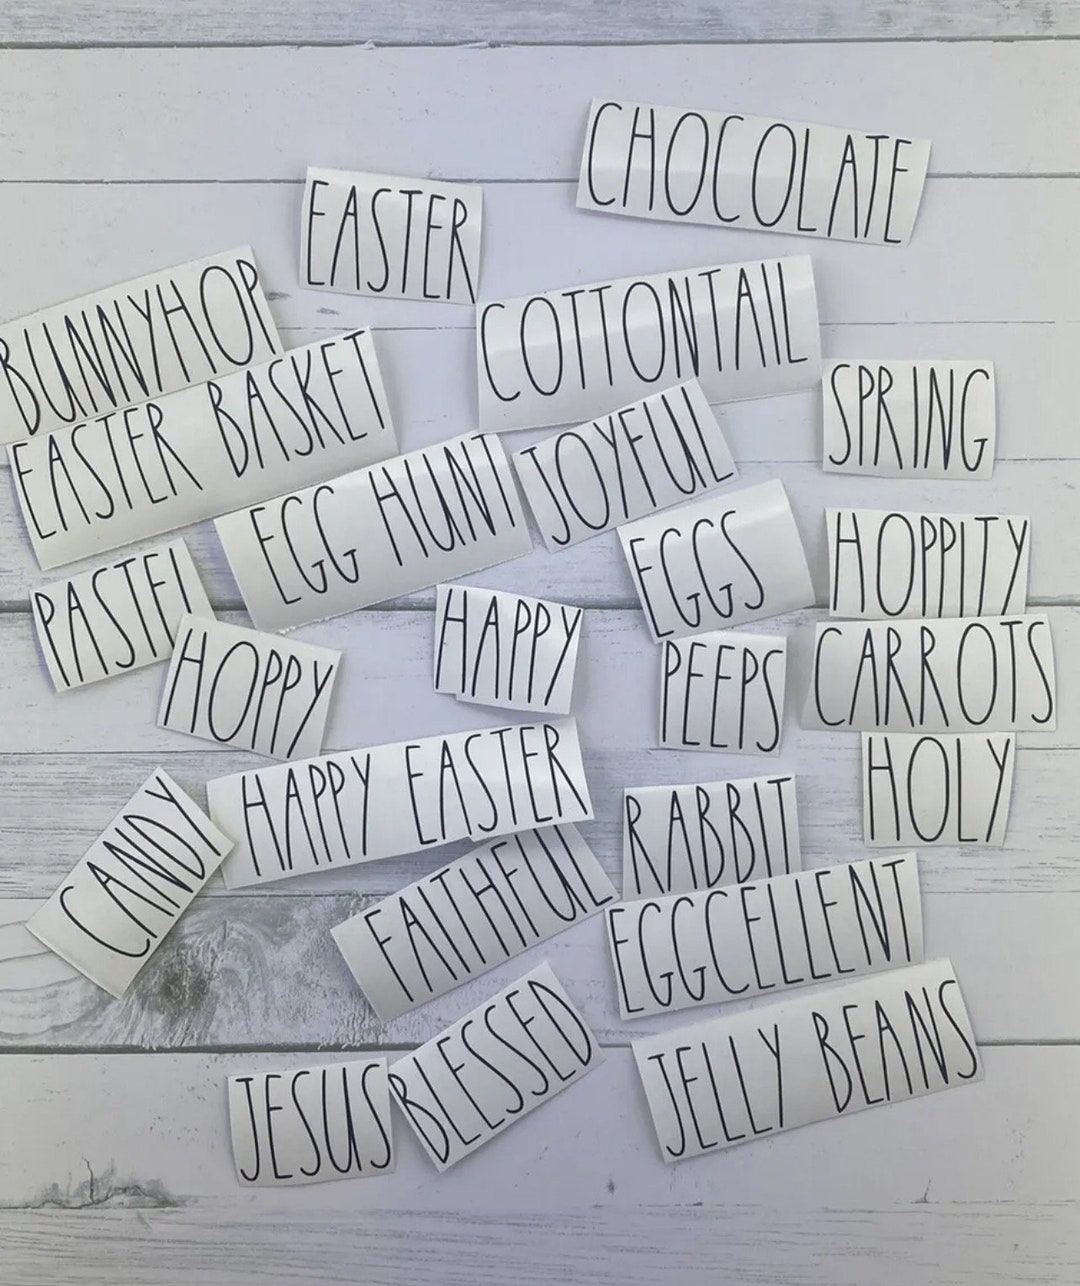 CHOCOLATE
EASTER
BUNNYHOP
COTTONTAIL
EASTER BASKET
SPRING
JOYFUL
EGG HUNT
EGGS
HOPPITY
PASTEL
HOPPY
HAPPY
PEEPS
CARROTS
HOLY
HAPPY EASTER
CANDY
RABBIT
FAITHFUL
EGGCELLENT
BLESSED
JELLY BEANS
JESUS